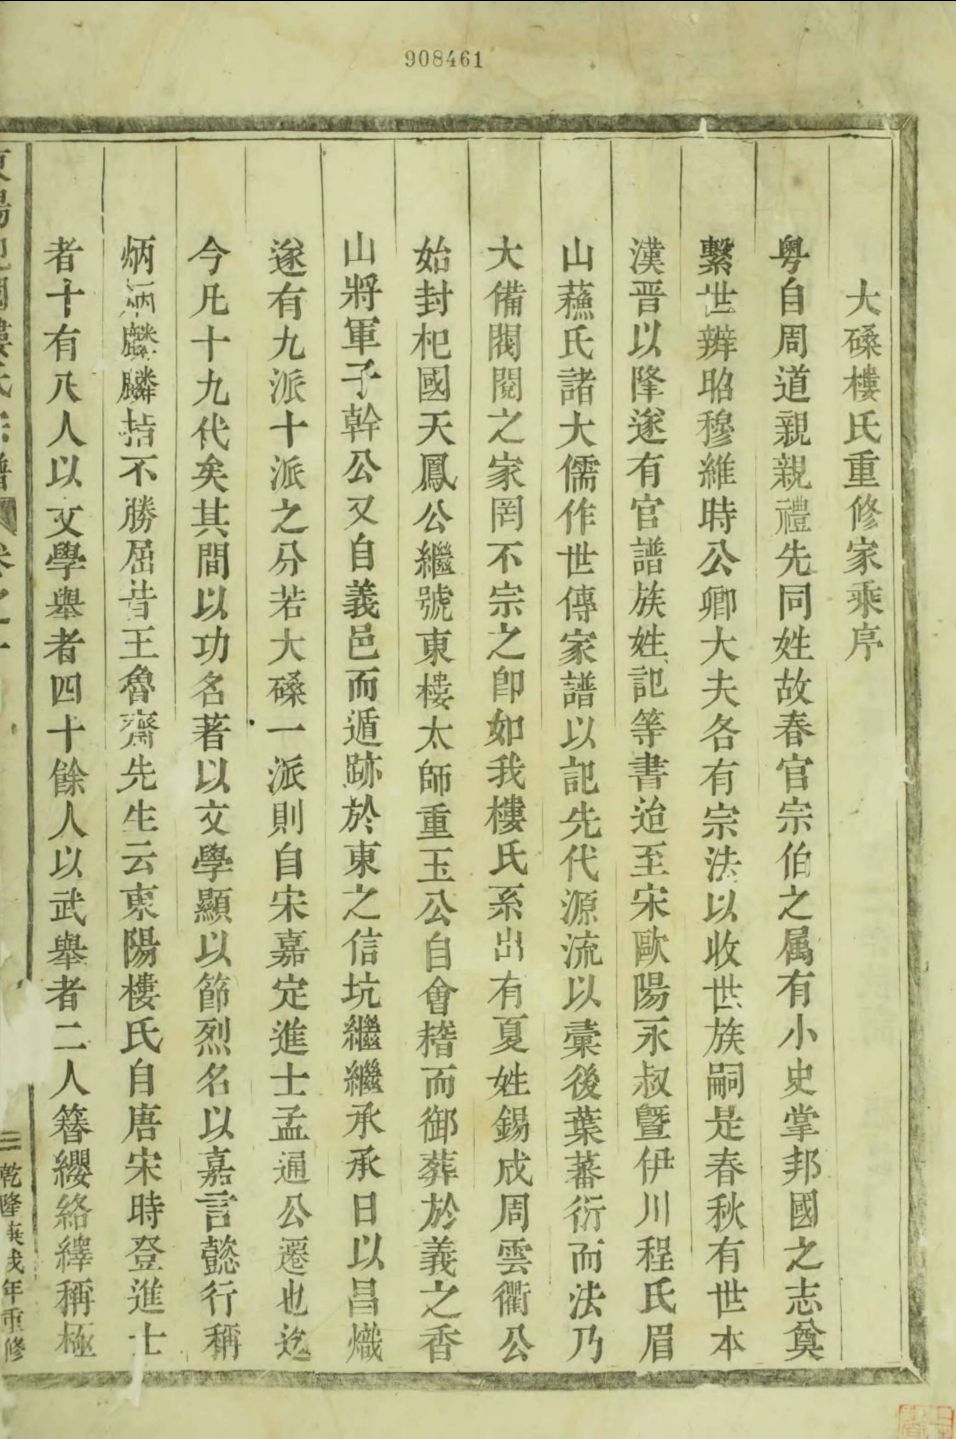 908461
大磉樓氏重修家乘序
粤自周道親親禮先同姓故春官宗伯之属有小史掌邦國之志奠
繫世辨昭穆維時公卿大夫各有宗法以收世族嗣是春秋有世本
漢晋以降遂有官譜族姓記等書迨至宋歐陽永叔曁伊川程氏眉
山蘓氏諸大儒作世傳家譜以記先代源流以彚後葉蕃衍而法乃
大備閥閱之家罔不宗之卽如我樓氏系出有夏姓錫成周雲衢公
始封杞國天鳳公繼號東樓太師重玉公自會稽而御葬於義之香
山將軍子幹公又自義邑而遁跡於東之信坑繼繼承承日以昌熾
遂有九派十派之分若大磉一派則自宋嘉定進士孟通公遷也迄
今凡十九代矣其間以功名著以文學顯以節烈名以嘉言懿行稱
炳炳麟麟指不勝屈昔王魯齋先生云東陽樓氏自唐宋時登進士
者十有八人以文學舉者四十餘人以武舉者二人簪纓絡繹稱極
三 乾隆庚戌年重修